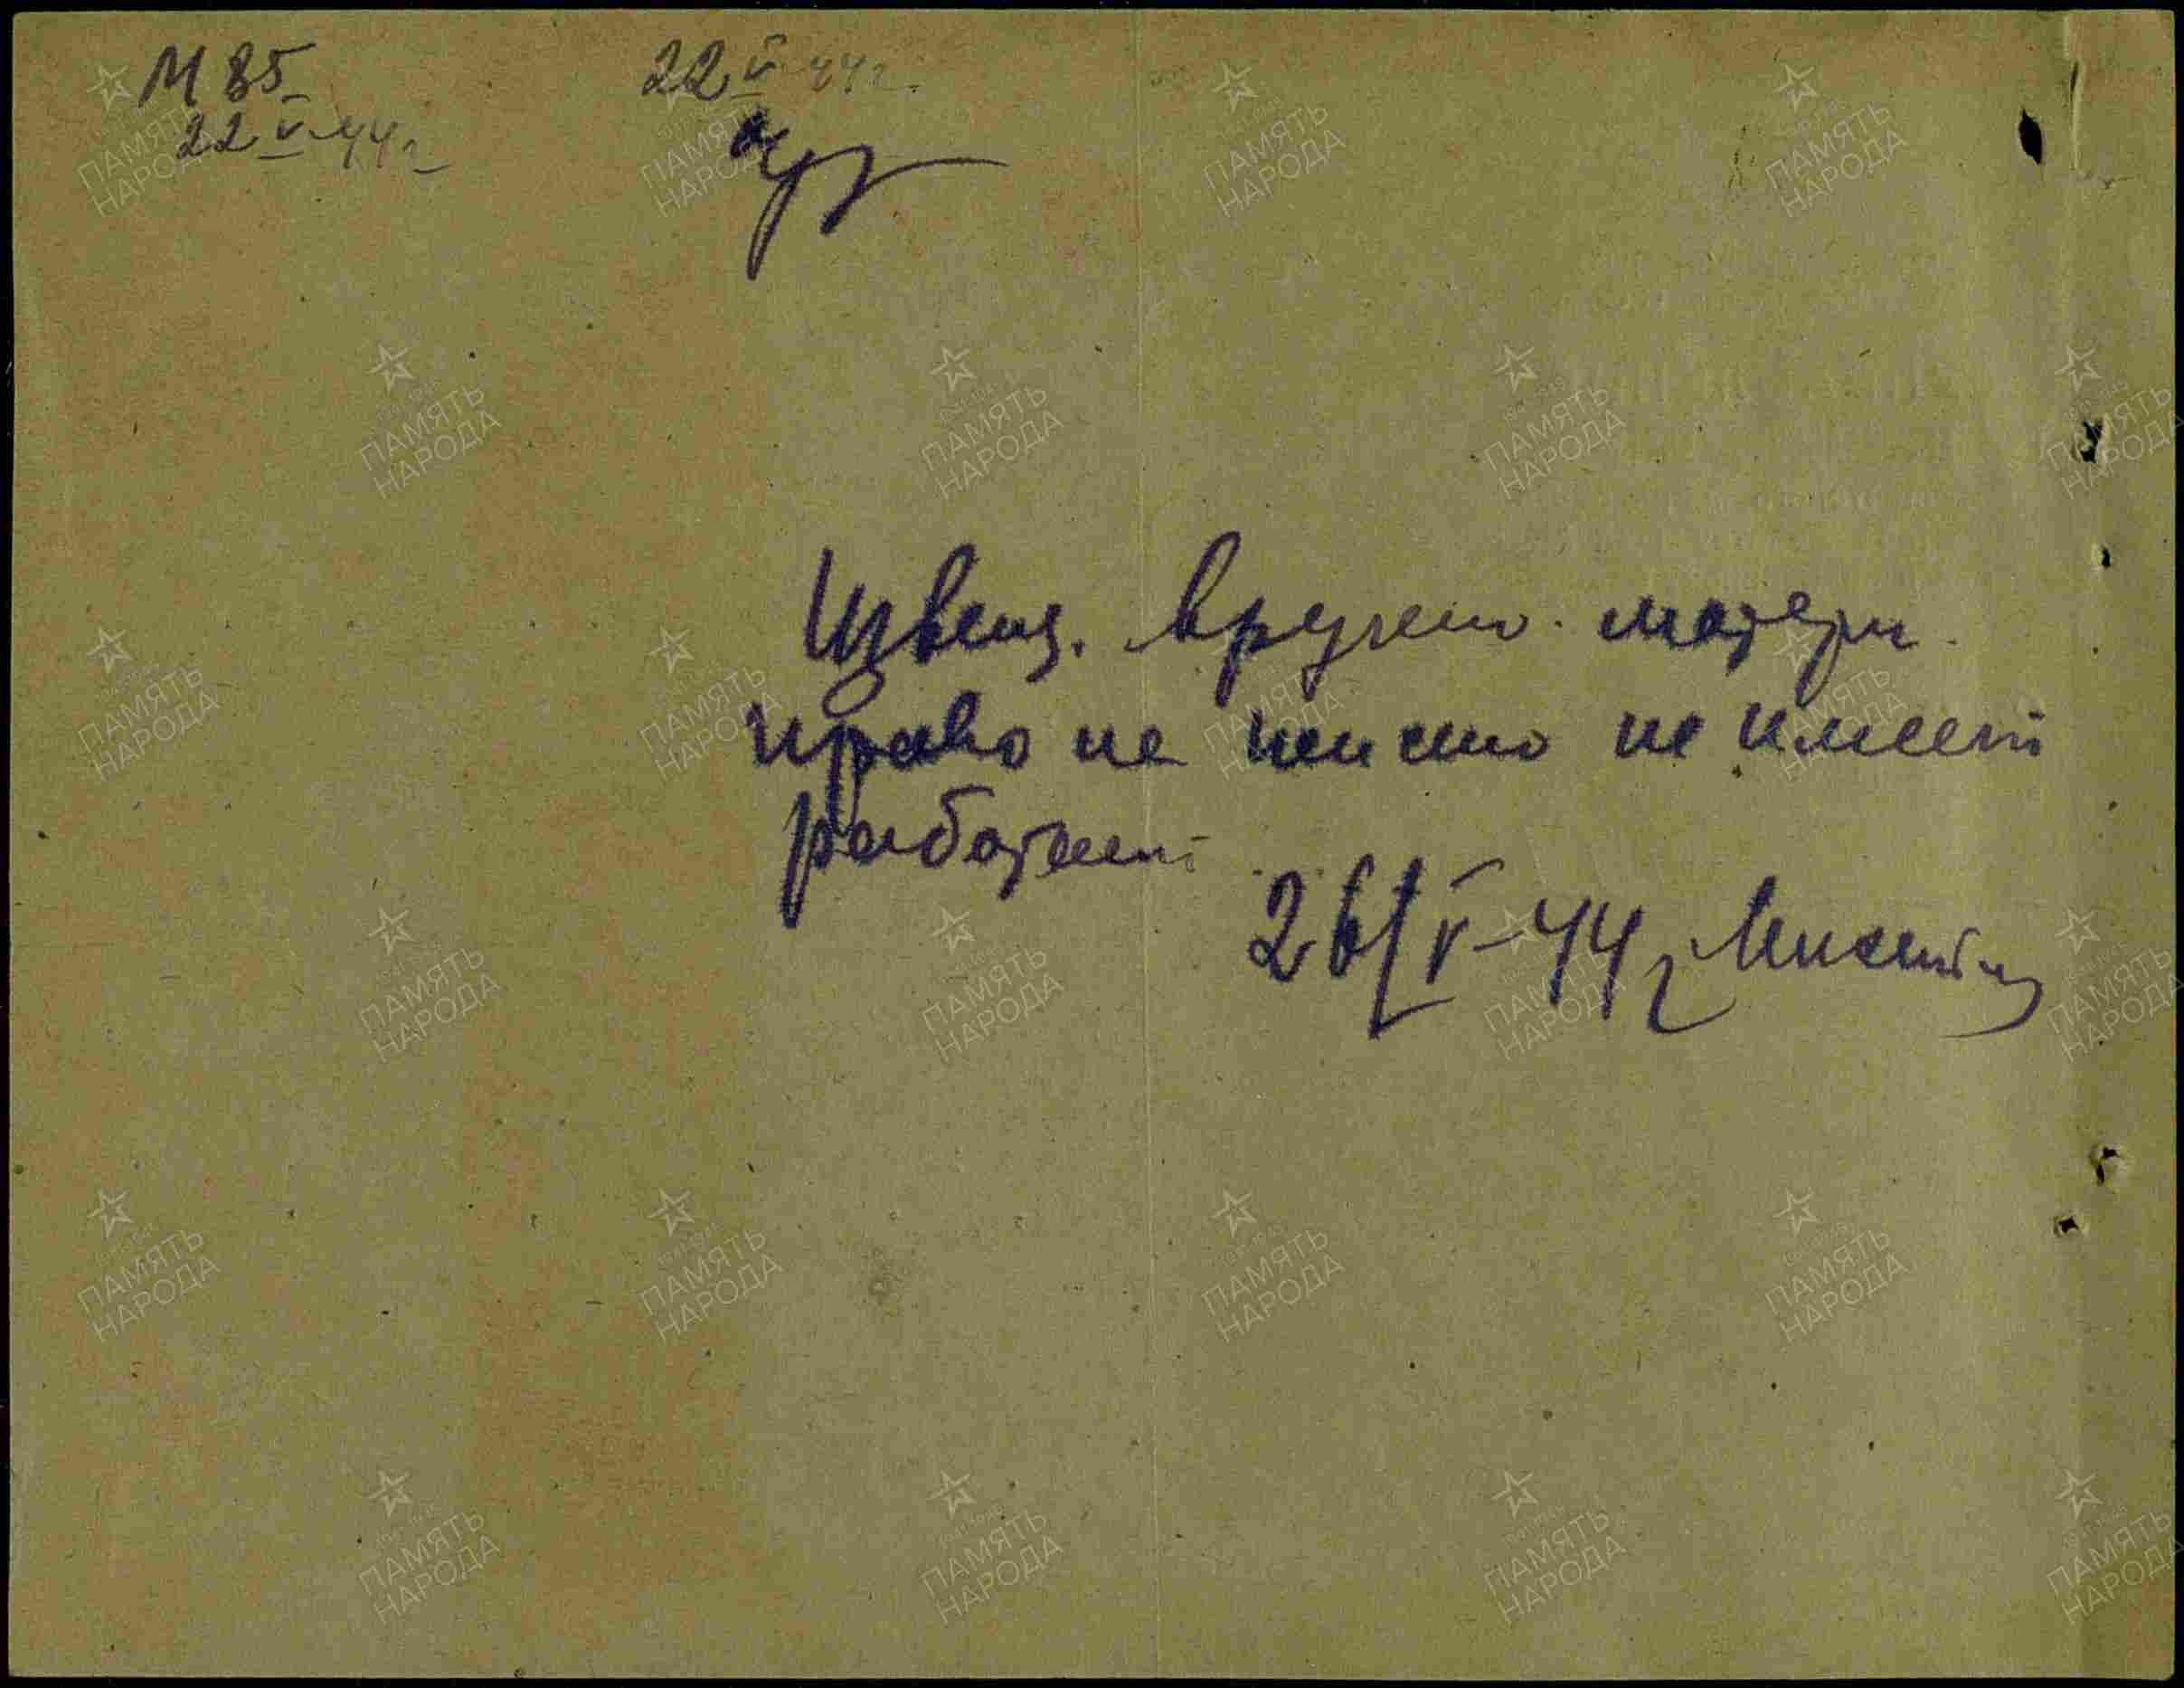 М 85
22 V 44 г.
22 V 44 г.
Извещ. вручено. матери.
право на пенсию не имеет
работает
26/V-44 г
ПАМЯТЬ НАРОДА